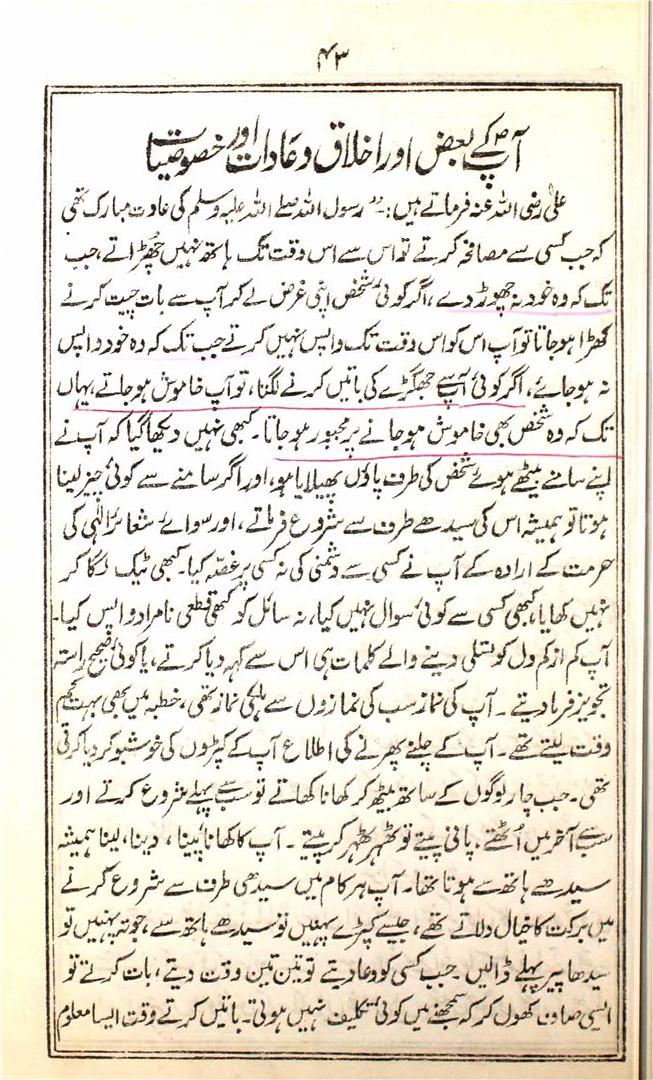 ۴۳
آپؐ کے بعض اور اخلاق و عادات اور خصوصیات
علی رضی اللہ عنہ فرماتے ہیں:۔ "رسول اللہ صلے اللہ علیہ وسلم کی عادت مبارک تھی
کہ جب کسی سے مصافحہ کرتے تو اس سے اس وقت تک ہاتھ نہیں چھڑاتے، جب
تک کہ وہ خود نہ چھوڑ دے، اگر کوئی شخص اپنی غرض لے کر آپ سے بات چیت کرنے
کھڑا ہو جاتا تو آپ اس کو اس وقت تک واپس نہیں کرتے جب تک کہ وہ خود واپس
نہ ہو جائے، اگر کوئی آپ سے جھگڑے کی باتیں کرنے لگتا، تو آپ خاموش ہو جاتے، یہاں
تک کہ وہ شخص بھی خاموش ہو جانے پر مجبور ہو جاتا۔ کبھی نہیں دیکھا گیا کہ آپ نے
اپنے سامنے بیٹھے ہوئے شخص کی طرف پاؤں پھیلایا ہو، اور اگر سامنے سے کوئی چیز لینا
ہوتا تو ہمیشہ اس کی سیدھے طرف سے شروع فرماتے، اور سوائے شعائر الٰہی کی
حرمت کے ارادہ کے آپ نے کسی سے دشمنی کی نہ کسی پر غصہ کیا۔ کبھی ٹیک لگا کر
نہیں کھایا، کبھی کسی سے کوئی سوال نہیں کیا، نہ سائل کو کبھی قطعی نامراد واپس کیا۔
آپ کم از کم دل کو تسلی دینے والے کلمات ہی اس سے کہہ دیا کرتے، یا کوئی صحیح راستہ
تجویز فرما دیتے۔ آپ کی نماز سب کی نمازوں سے ہلکی نماز تھی، خطبہ میں بھی بہت کم
وقت لیتے تھے۔ آپ کے چلنے پھرنے کی اطلاع آپ کے کپڑوں کی خوشبو کر دیا کرتی
تھی۔ جب چار لوگوں کے ساتھ بیٹھ کر کھانا کھاتے تو سب سے پہلے شروع کرتے اور
سب سے آخر میں اُٹھتے۔ پانی پیتے تو ٹھہر ٹھہر کر پیتے۔ آپ کا کھانا پینا، دینا، لینا ہمیشہ
سیدھے ہاتھ سے ہوتا تھا۔ آپ ہر کام میں سیدھی طرف سے شروع کرنے
میں برکت کا خیال دلاتے تھے، جیسے کپڑے پہنیں تو سیدھے ہاتھ سے، جوتہ پہنیں تو
سیدھا پیر پہلے ڈالیں۔ جب کسی کو دعا دیتے تو تین تین وقت دیتے، بات کرتے تو
ایسی صاف کھول کر کہ سمجھنے میں کوئی تکلیف نہیں ہوتی۔ باتیں کرتے وقت ایسا معلوم